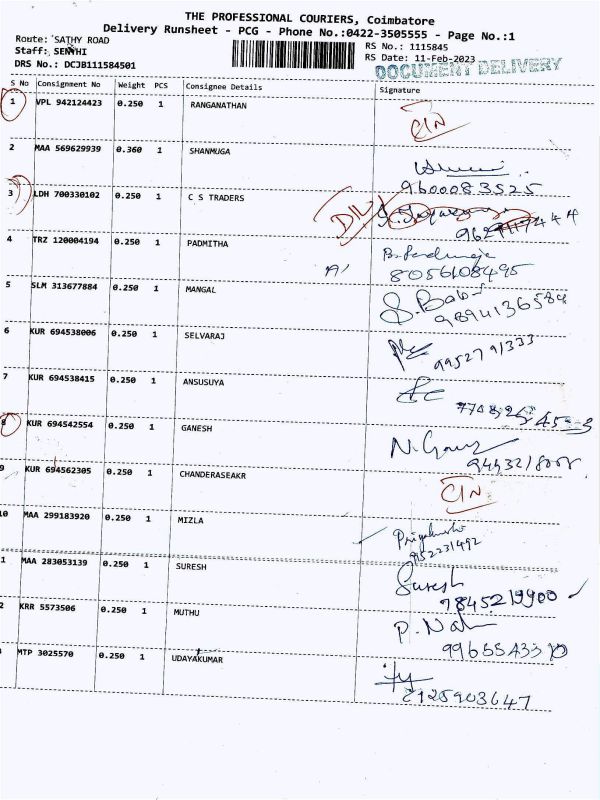 THE PROFESSIONAL COURIERS, Coimbatore
Delivery Runsheet - PCG - Phone No.:0422-3505555 - Page No.:1
Route: SATHY ROAD
RS No.: 1115845
Staff: SENTHI
RS Date: 11-Feb-2023
DRS No.: DCJB111584501
DOCUMENT DELIVERY
S No Consignment No Weight PCS Consignee Details Signature
1 VPL 942124423 0.250 1 RANGANATHAN
CIN
2 MAA 569629939 0.360 1 SHANMUGA
9600083525
3 LDH 700330102 0.250 1 C S TRADERS
DIL
4 TRZ 120004194 0.250 1 PADMITHA
8056108495
5 SLM 313677884 0.250 1 MANGAL
S. Bab
9894136584
6 KUR 694538006 0.250 1 SELVARAJ
9952791333
7 KUR 694538415 0.250 1 ANSUSUYA
8 KUR 694542554 0.250 1 GANESH
9 KUR 694562305 0.250 1 CHANDERASEAKR
CIN
10 MAA 299183920 0.250 1 MIZLA
1 MAA 283053139 0.250 1 SURESH
Suresh
2 KRR 5573506 0.250 1 MUTHU
MTP 3025570 0.250 1 UDAYAKUMAR